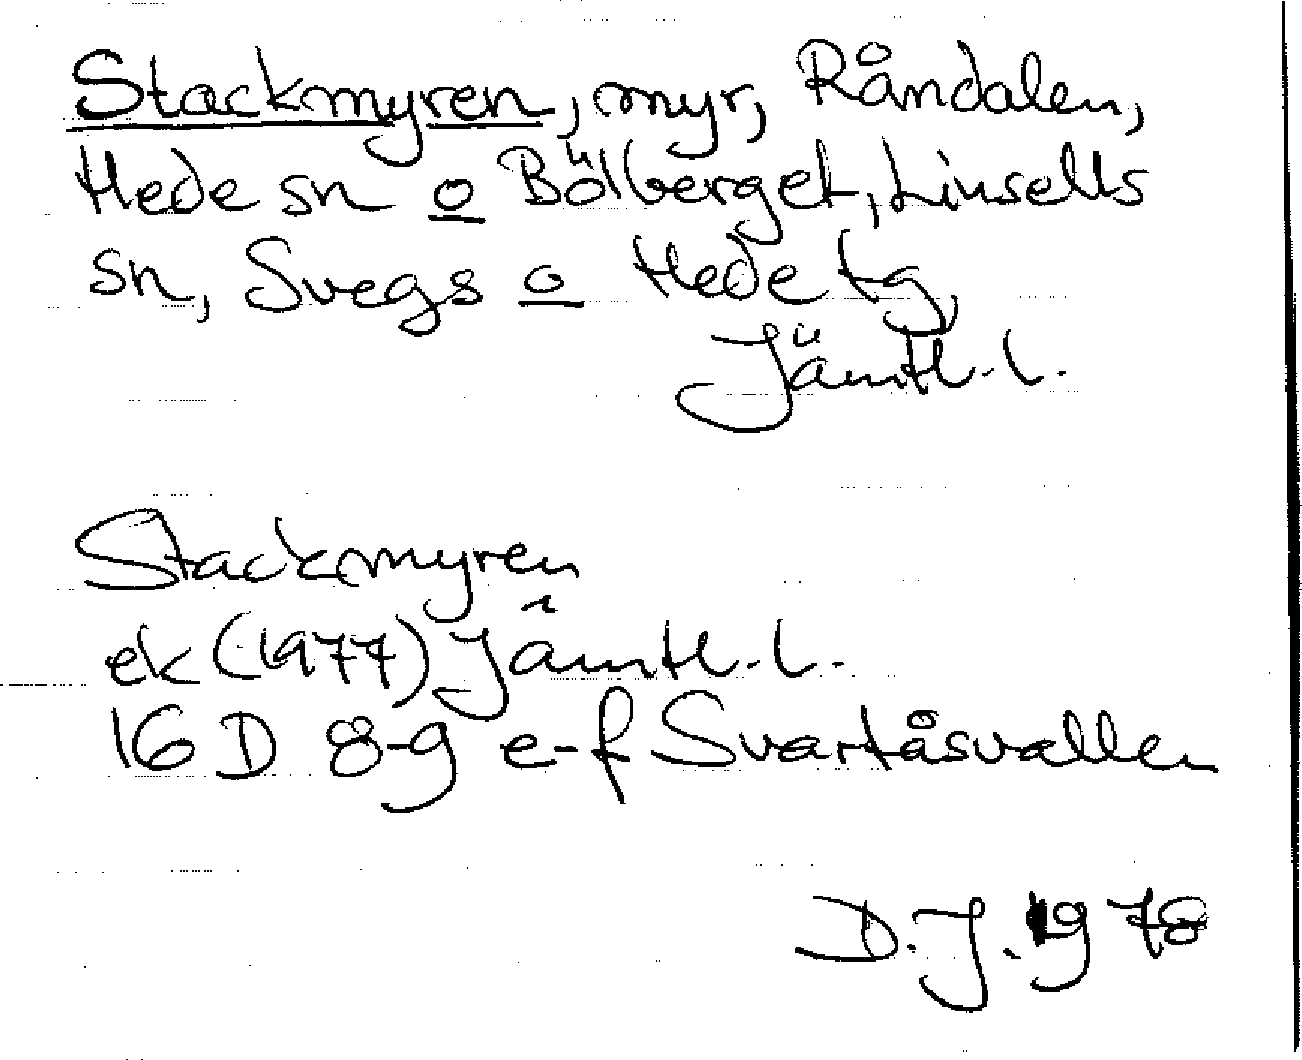 Stackmyren, myr, Råndalen,
Hede sn o Bölberget, Linsells
sn, Svegs o Hede tg,
Jämtl. l.
Stackmyren
ek (1977) Jämtl. l.
16 D 8-9 e-f Svartåsvallen
D. J. 1978